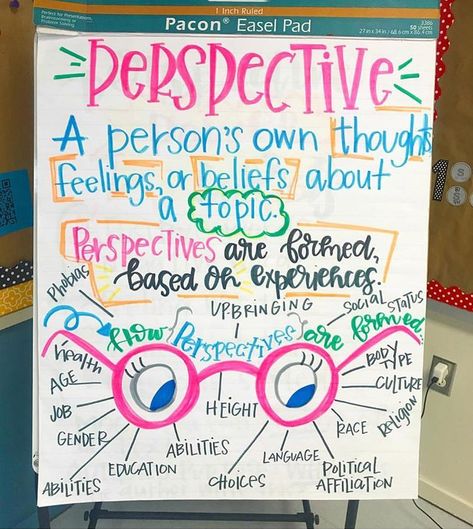 1 Inch Ruled
Perfect for Presentations,
Brainstorming or
Problem Solving
Pacon® Easel Pad
3386
50 sheets
27 in x 34 in / 68.6 cm x 86.4 cm
PERSPECTIVE
A person's own thoughts
feelings, or beliefs about
a topic.
Perspectives are formed,
based on experiences.
Phobias
UPBRINGING
SOCIAL STATUS
How Perspectives are formed...
Health
AGE
JOB
GENDER
ABILITIES
EDUCATION
ABILITIES
HEIGHT
CHOICES
LANGUAGE
POLITICAL
AFFILIATION
RACE
Religion
CULTURE
BODY
TYPE
1